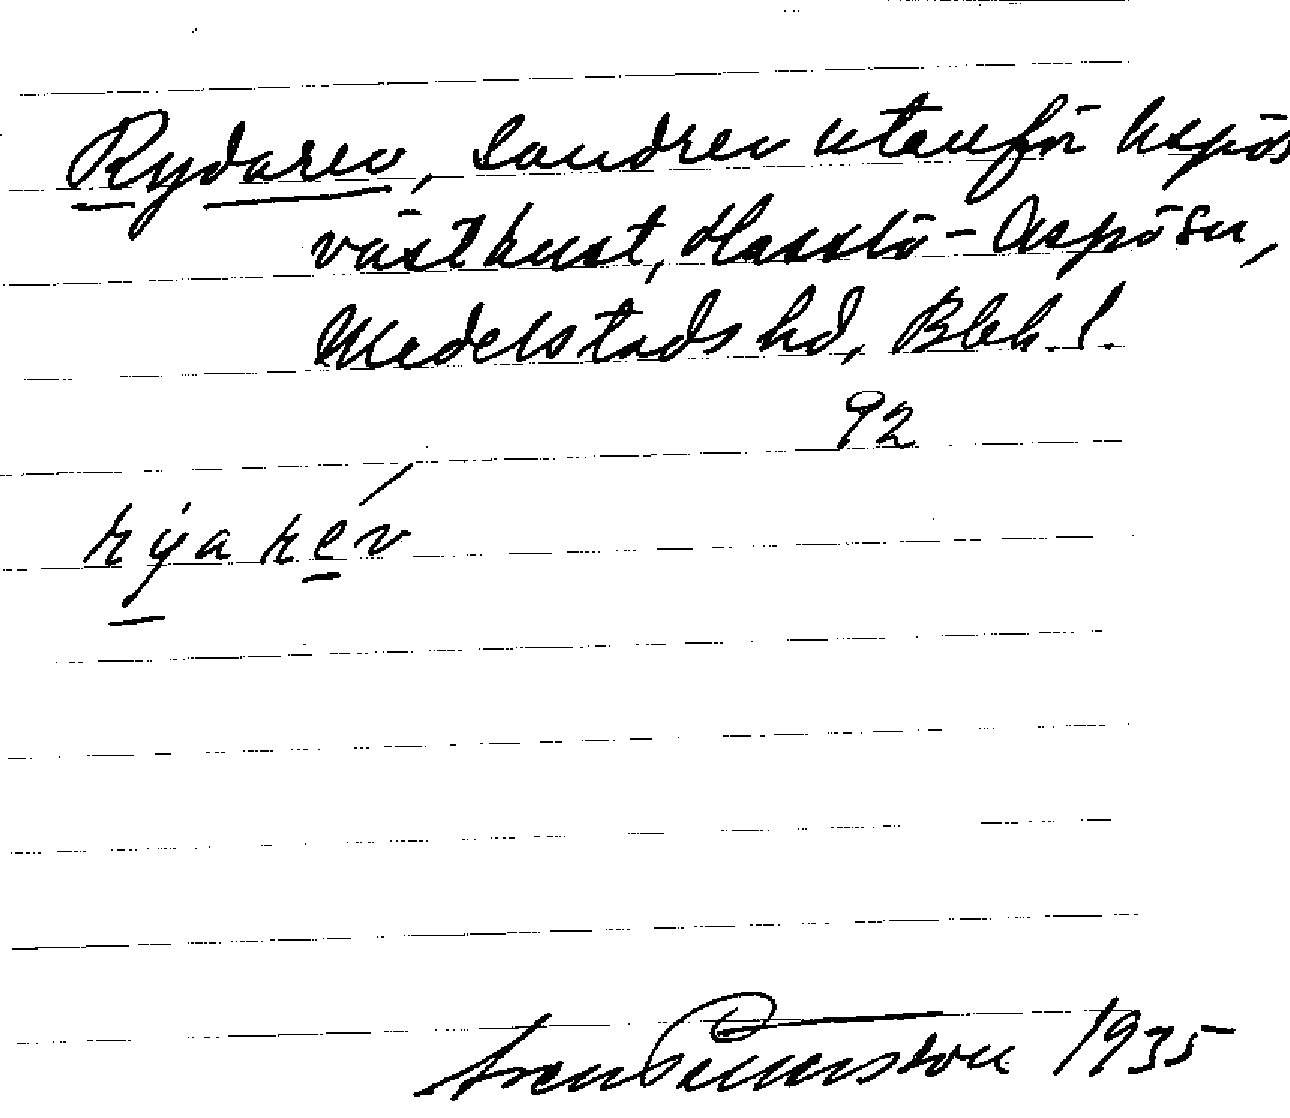 Rydarev, Sandrev utanför Aspös
västkust, Hasslö-Aspösn,
Medelstads hd, Blek. l.
92
rýa rév
Sven Benson 1935